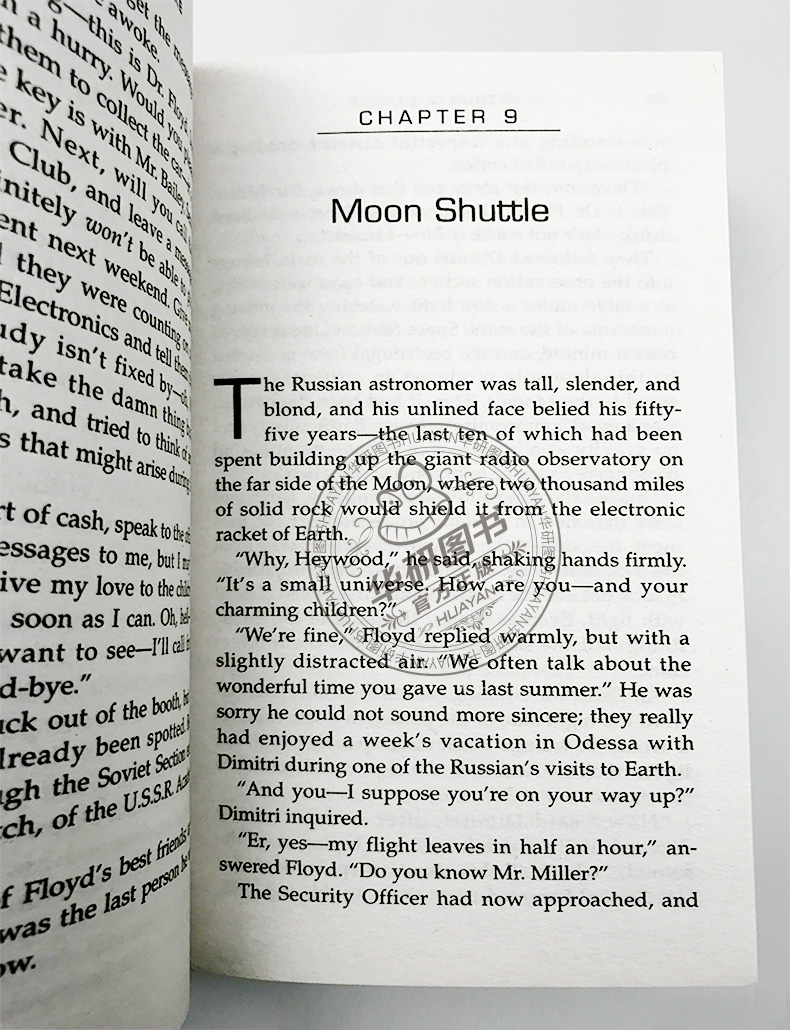 get the
awoke.
—this is Dr. Floyd
n a hurry. Would you
them to collect the car—
e key is with Mr. Bailey,
er. Next, will you call
Club, and leave a
initely won't be able to
ent next weekend. Give
they were counting on
Electronics and tell them
udy isn't fixed by—oh,
take the damn thing
h, and tried to think of
s that might arise during
rt of cash, speak to the
essages to me, but I
ive my love to the
soon as I can. Oh,
want to see—I'll call
d-bye."
uck out of the booth,
lready been spotted.
ugh the Soviet Section
tch, of the U.S.S.R.
f Floyd's best friends
was the last person he
ow.
CHAPTER 9
Moon Shuttle
The Russian astronomer was tall, slender, and
blond, and his unlined face belied his fifty-
five years—the last ten of which had been
spent building up the giant radio observatory on
the far side of the Moon, where two thousand miles
of solid rock would shield it from the electronic
racket of Earth.
"Why, Heywood," he said, shaking hands firmly.
"It's a small universe. How are you—and your
charming children?"
"We're fine," Floyd replied warmly, but with a
slightly distracted air. "We often talk about the
wonderful time you gave us last summer." He was
sorry he could not sound more sincere; they really
had enjoyed a week's vacation in Odessa with
Dimitri during one of the Russian's visits to Earth.
"And you—I suppose you're on your way up?"
Dimitri inquired.
"Er, yes—my flight leaves in half an hour," an-
swered Floyd. "Do you know Mr. Miller?"
The Security Officer had now approached, and
华研图书
官方正版
HUAYAN
华研图书HUAYAN华研图书HUAYAN华研图书